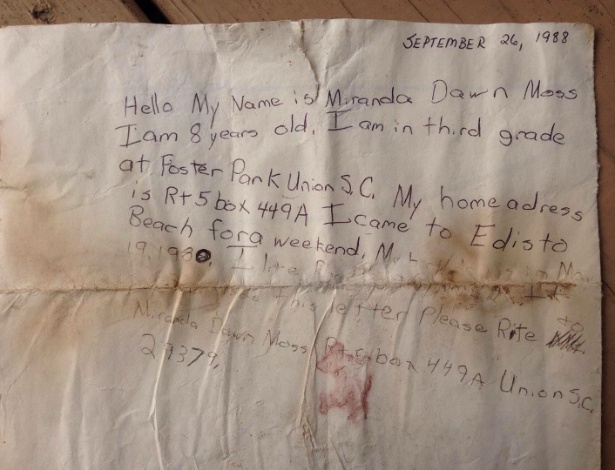 SEPTEMBER 26, 1988
Hello My Name is Miranda Dawn Moss
I am 8 years old. I am in third grade
at Foster Park Union S.C. My home adress
is Rt 5 box 449A I came to Edisto
Beach for a weekend, My
19, 1980. I live
this letter Please Rite to
Miranda Dawn Moss Rt 5 box 449A Union S.C.
29379,